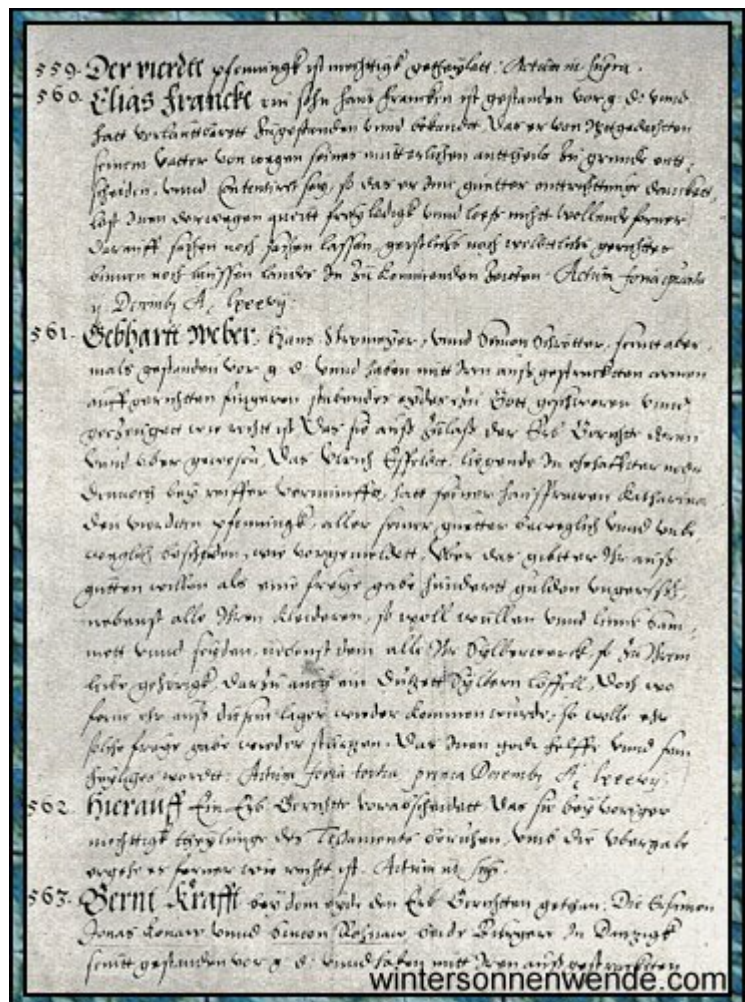 559. Der vierdte pfenningk ist mechtigk getheylett. Actum ut supra.
560. Elias Francke ein sohn Hans Francken ist gestanden vor g. d. vnnd
hatt vorlauttbarett zugestanden vnnd bekandt, Das er von
seinem vatter von wegen seines mutterlichen antheils zu grunde ent,
scheiden, vnnd Contentiret sey, so das er Ime gutter danckett,
lest Inen derwegen queitt frey ledigk vnnd loess nicht wollende ferner
darauff sachen noch sachen lassen, geistlichs noch weltlichs gerichtes
binnen noch baussen landes In zu kommenden zeitten. Actum feria quarta
ij Decemb. A.
561. Gebhartt Weber, Hans vnnd Simon Schrötter, seintt aber,
mals gestanden vor g. d. vnnd haben mitt Iren aussgestrackten armen
auffgerichtten fingeren stabendes eydes zu Gott geschworen vnnd
gezeugett wie recht ist Das sie auss Zulass der Erb Gerichte daran
vnnd vber gewesen, Das Vlrich liegende In
dennoch bey reiffer vernunfft, hatt seiner haussfrawen Katharina
den vierdten pfenningk, aller seiner gutter beweglich vnnd vnbe
weglich bescheiden, wie vorgemeldett, Vber das gibtt er Ihr auss
gutten willen als eine freye gabe hundertt gulden vngerisch,
nebenst alle Ihren kleideren, so woll wullen vnnd linnen Sam,
mett vnnd seyden, nebenst dem alle Ihr Sylberwerck so zu Ihrem
leibe gehorigk, Darzu auch ein Dutzett Sylbern löffell, Doch wo
ferne ehr auss diesem lager wieder kommen wurde, so wolle ehr
solche freye gabe wieder Das Inen godt helffe vnnd sein
heyliges wordtt. Actum feria tertia prima Decemb. A.
562. Hierauff Ein Erb Gerichte vorabscheidett Das sie bey voriger
mechtigk theylunge des Testaments beruhen, vnnd die vbergabe
ergehe es ferner wie recht ist. Actum ut sup.
563. Bernt Krafft bey dem eyde den Erb Gerichten gethan. Die Ersamen
Jonas vnnd Simon beide Burgere In Danzigk
seintt gestanden vor g. d. vnnd haben mitt Iren aussgestrackten
wintersonnenwende.com